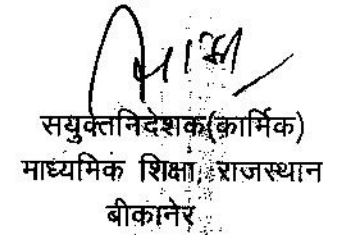 सयुक्तनिदेशक(कार्मिक)
माध्यमिक शिक्षा, राजस्थान
बीकानेर